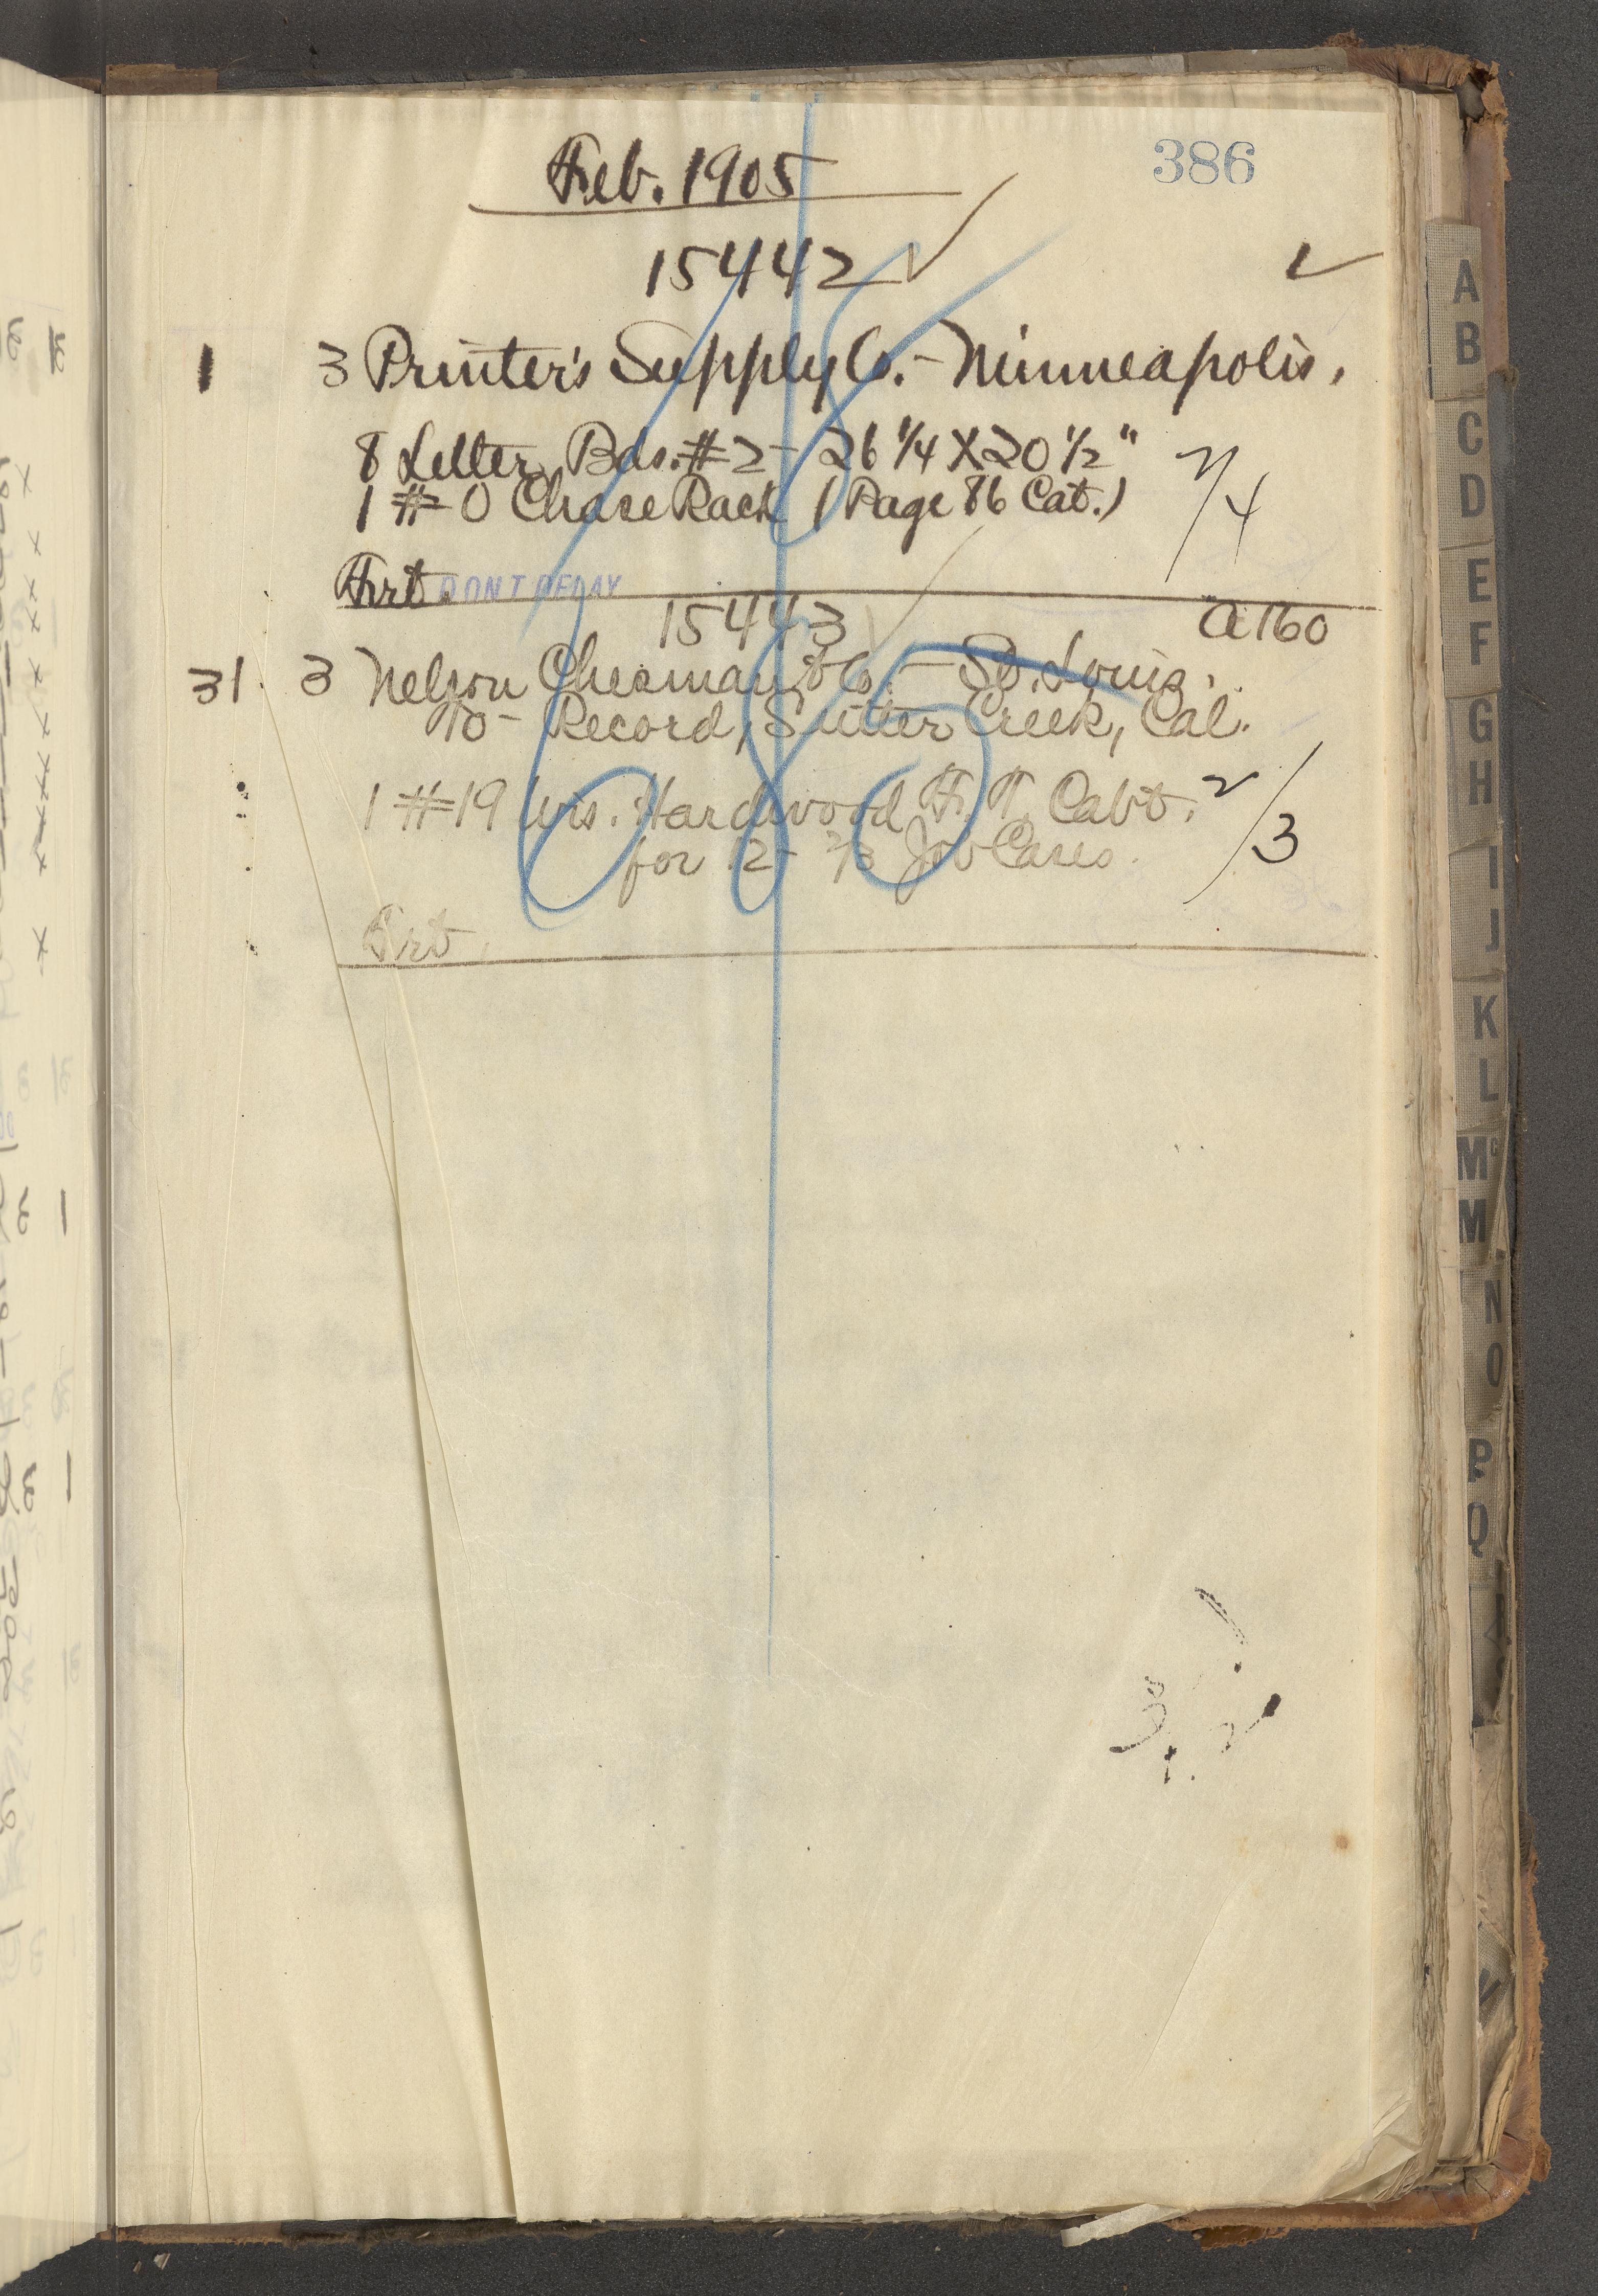 386
Feb. 1905
15442
1 3 Printer's Supply Co. - Minneapolis,
8 Letter Bds. #2 - 26 1/4 X 20 1/2"
1 #0 Chase Rack (Page 86 Cat.)
2/4
Frt. DON'T DELAY
15443
A160
31. 3 Nelson Chesman & Co. - St. Louis.
To - Record, Sutter Creek, Cal.
1 #19 Wis. Hardwood F. T. Cabt.
for 12 - 2/3 Job Cases.
2/3
Frt.
A
B
C
D
E
F
G
H
I
J
K
L
Mc
M
N
O
P
Q